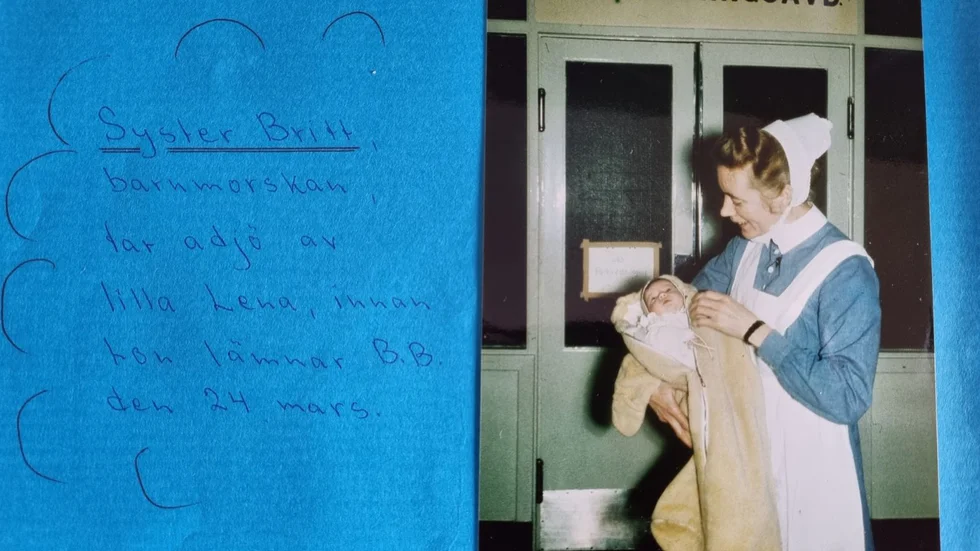 Syster Britt,
barnmorskan,
tar adjö av
lilla Lena, innan
hon lämnar B.B.
den 24 mars.